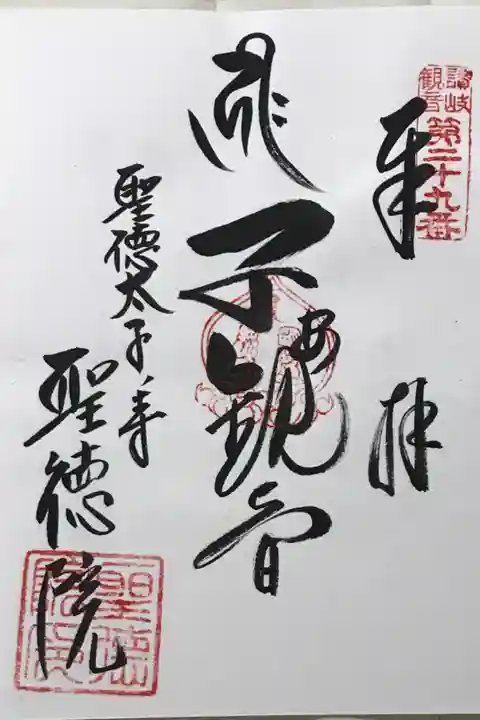 讃岐
観音
第二十九番
奉拝
子安観音
聖徳太子
聖徳院